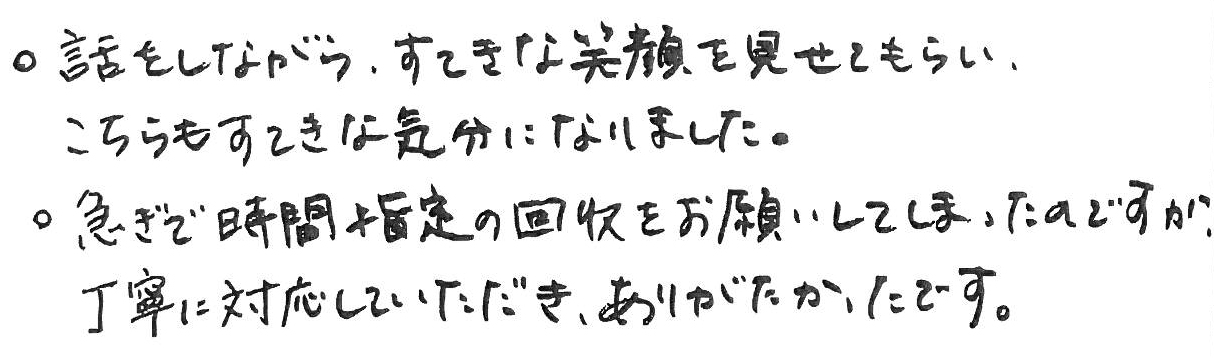 ○ 話をしながら、すてきな笑顔を見せてもらい、
こちらもすてきな気分になりました。
○ 急ぎで時間指定の回収をお願いしてしまったのですが、
丁寧に対応していただき、ありがたかったです。